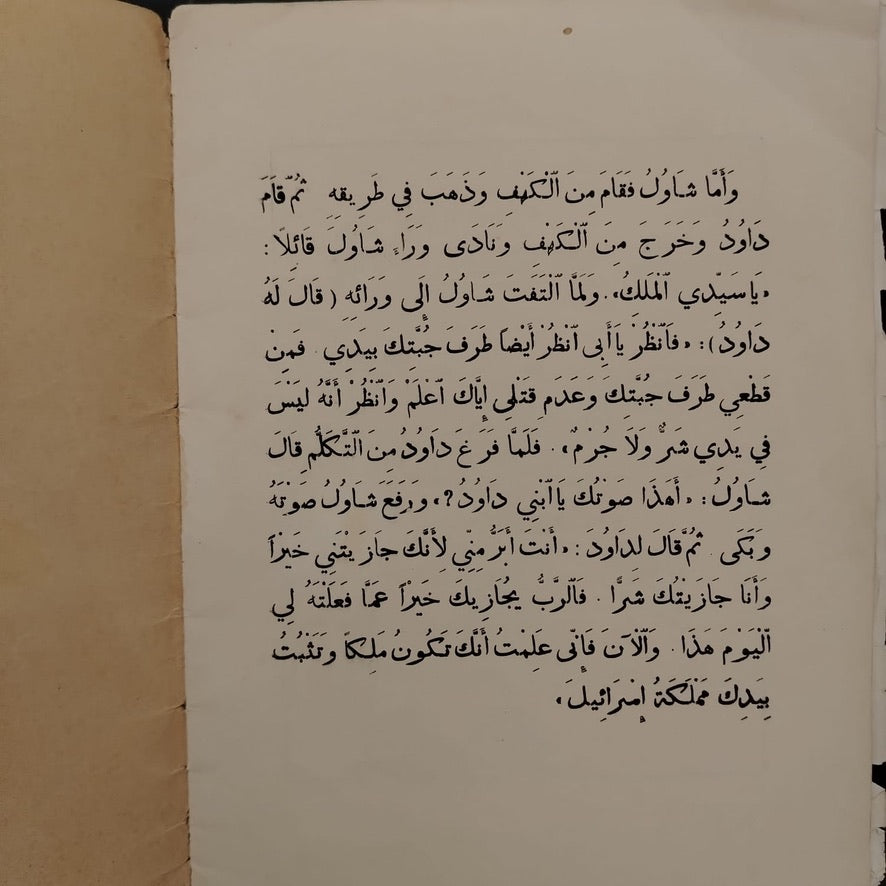 وَأَمَّا شَاوُلُ فَقَامَ مِنَ ٱلْكَهْفِ وَذَهَبَ فِي طَرِيقِهِ ثُمَّ قَامَ
دَاوُدُ وَخَرَجَ مِنَ ٱلْكَهْفِ وَنَادَى وَرَاءَ شَاوُلَ قَائِلًا :
«يَا سَيِّدِي ٱلْمَلِكُ». وَلَمَّا ٱلْتَفَتَ شَاوُلُ إِلَى وَرَائِهِ ( قَالَ لَهُ
دَاوُدُ ): «فَٱنْظُرْ يَا أَبِى ٱنْظُرْ أَيْضاً طَرَفَ جُبَّتِكَ بِيَدِي . فَمِنْ
قَطْعِي طَرَفَ جُبَّتِكَ وَعَدَمِ قَتْلِى إِيَّاكَ ٱعْلَمْ وَٱنْظُرْ أَنَّهُ لَيْسَ
فِي يَدِي شَرٌّ وَلَا جُرْمٌ» . فَلَمَّا فَرَغَ دَاوُدُ مِنَ ٱلتَّكَلُّمِ قَالَ
شَاوُلُ : «أَهَذَا صَوْتُكَ يَا ٱبْنِي دَاوُدُ ?» وَرَفَعَ شَاوُلُ صَوْتَهُ
وَبَكَى . ثُمَّ قَالَ لِدَاوُدَ : «أَنْتَ أَبَرُّ مِنِّي لِأَنَّكَ جَازَيْتَنِي خَيْرًا
وَأَنَا جَازَيْتُكَ شَرًّا . فَٱلرَّبُّ يُجَازِيكَ خَيْرًا عَمَّا فَعَلْتَهُ لِي
ٱلْيَوْمَ هَذَا . وَٱلْآنَ فَإِنِّى عَلِمْتُ أَنَّكَ تَكُونُ مَلِكاً وَتَثْبُتُ
بِيَدِكَ مَمْلَكَةُ إِسْرَائِيلَ»